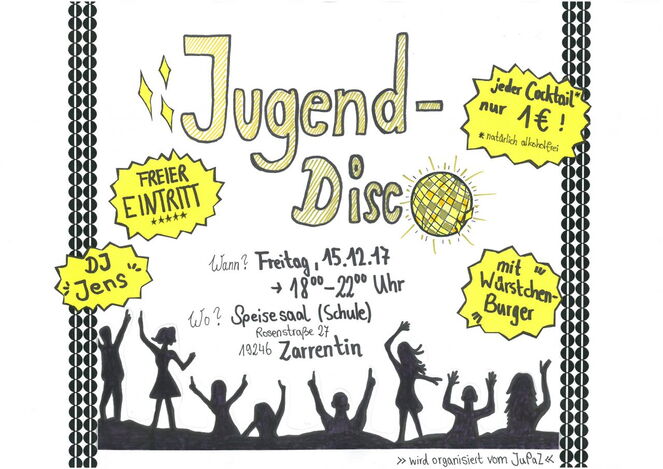 Jugend-
Disco
jeder Cocktail*
nur 1€!
* natürlich alkoholfrei
FREIER
EINTRITT
*****
DJ
Jens
Wann? Freitag, 15.12.17
→ 18⁰⁰-22⁰⁰ Uhr
Wo? Speisesaal (Schule)
Rosenstraße 27
19246 Zarrentin
mit
Würstchen-
Burger
» wird organisiert vom JuPaZ «